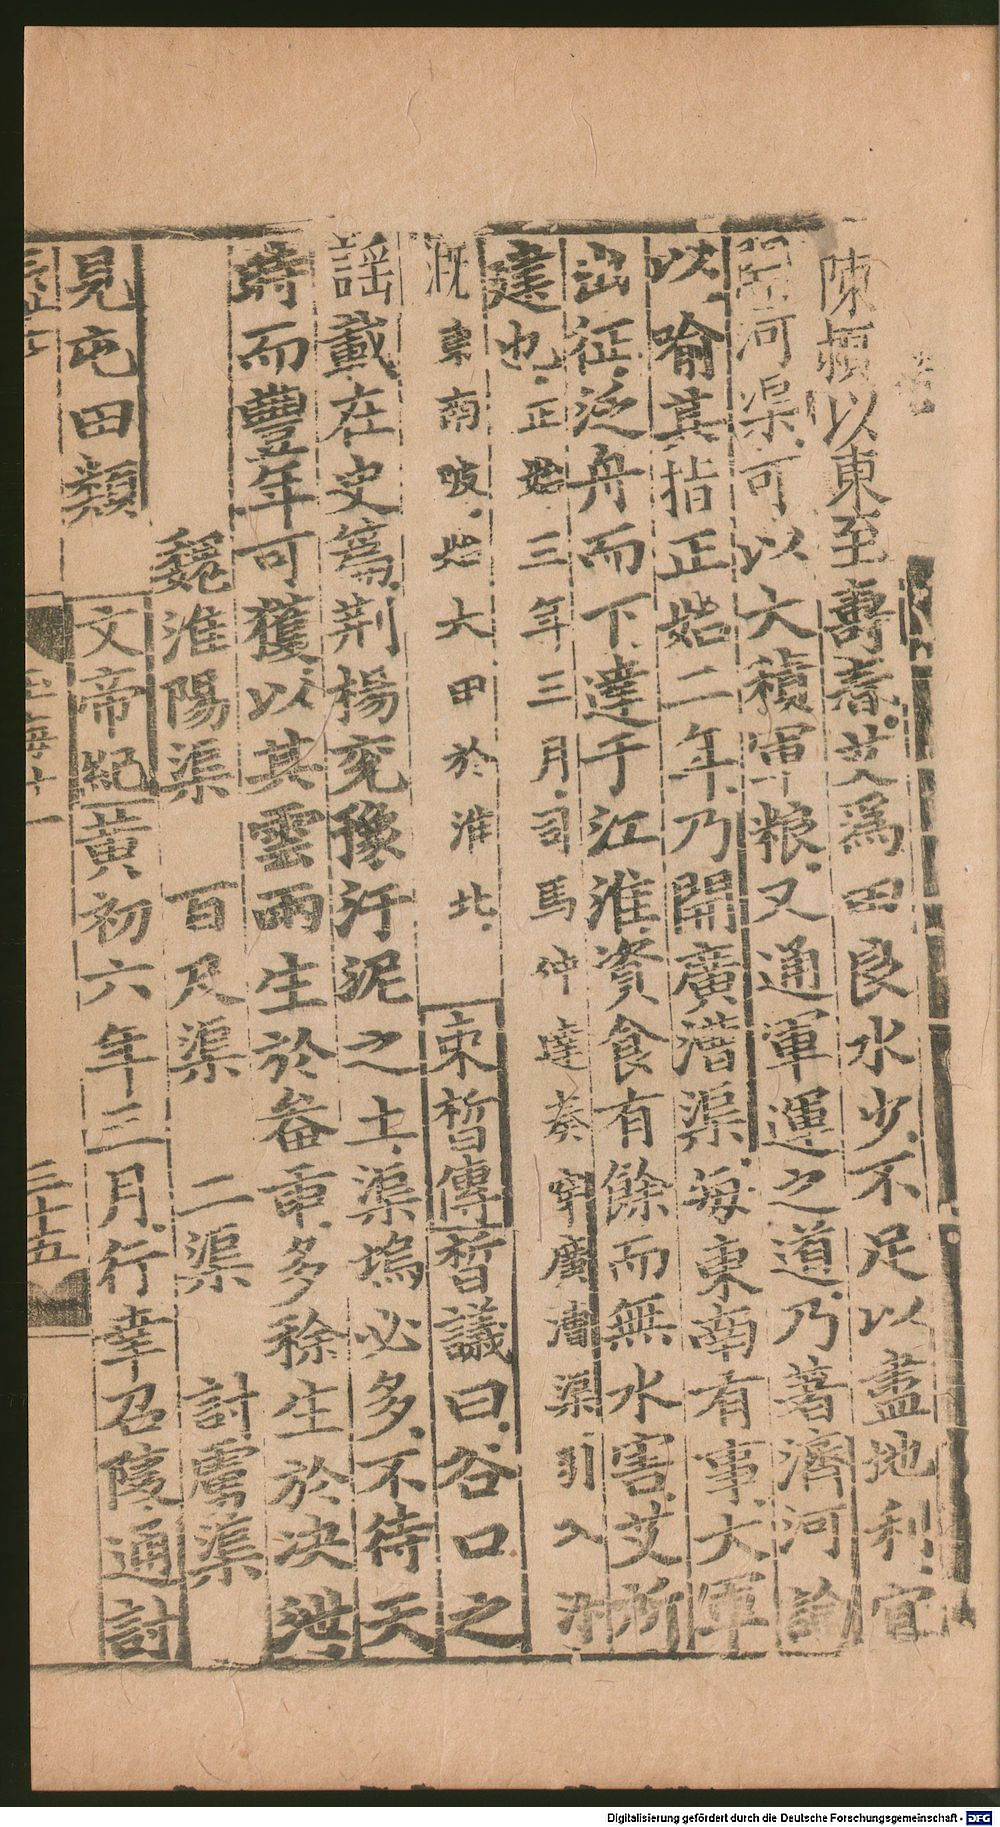 陳項以東至壽春艾爲田良水少不足以盡地利宜
開河渠可以大積軍粮又通軍運之道乃著濟河論
以喻其指正始二年乃開廣漕渠每東南有事大軍
出征泛舟而下達于江淮資食有餘而無水害艾所
建也正始三年三月司馬仲達奏穿廣漕渠引入汴
溉東南陂始大甲於淮北 束晳傳晳議曰谷口之
謡載在史篇荆楊兖豫汙泥之土渠塢必多不待天
時而豐年可獲以其雲雨生於畚臿多稌生於决泄
魏淮陽渠 百尺渠 二渠 討虜渠
見屯田類 文帝紀黄初六年三月行幸召陵通討
玉海十一
三十五
Digitalisierung gefördert durch die Deutsche Forschungsgemeinschaft - DFG